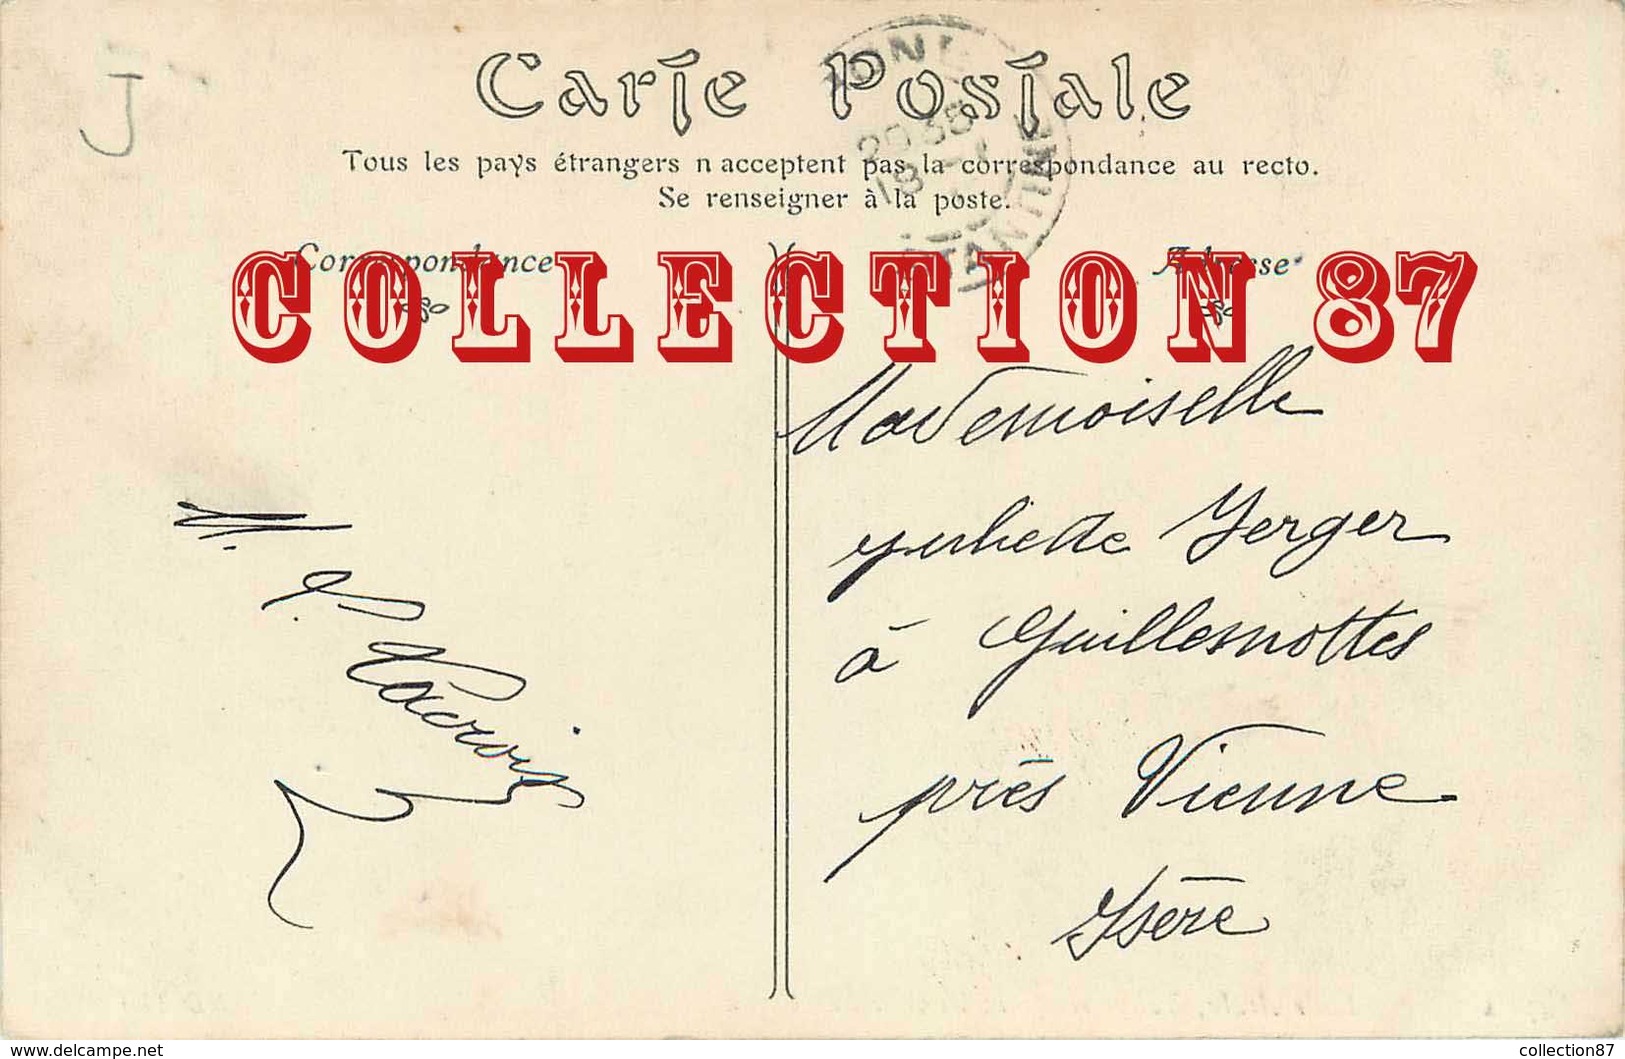 J
Carte Postale
Tous les pays étrangers n acceptent pas la correspondance au recto.
Se renseigner à la poste.
Correspondance
Adresse
COLLECTION 87
Mademoiselle
Yerger
à Guillemottes
près Vienne
Isère
Lacroix
www.delcampe.net
collection87